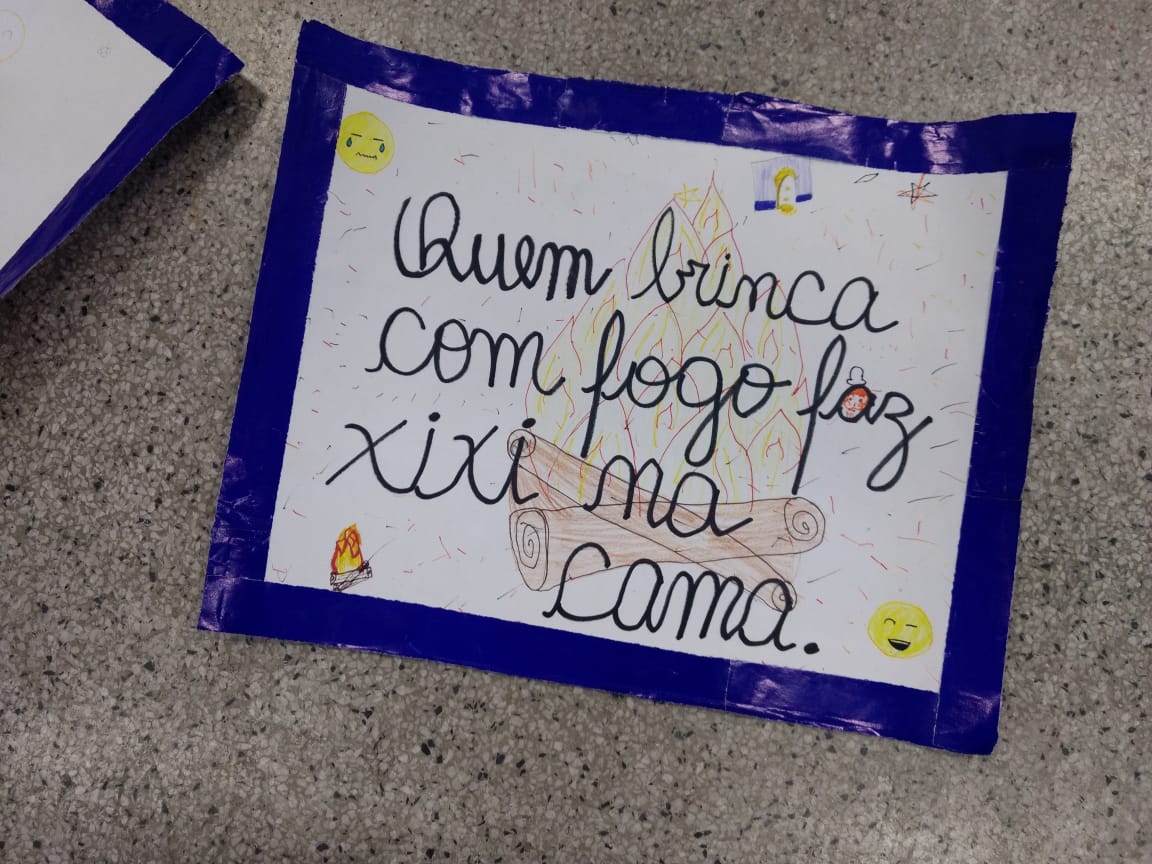 Quem brinca
com fogo faz
xixi na
cama.